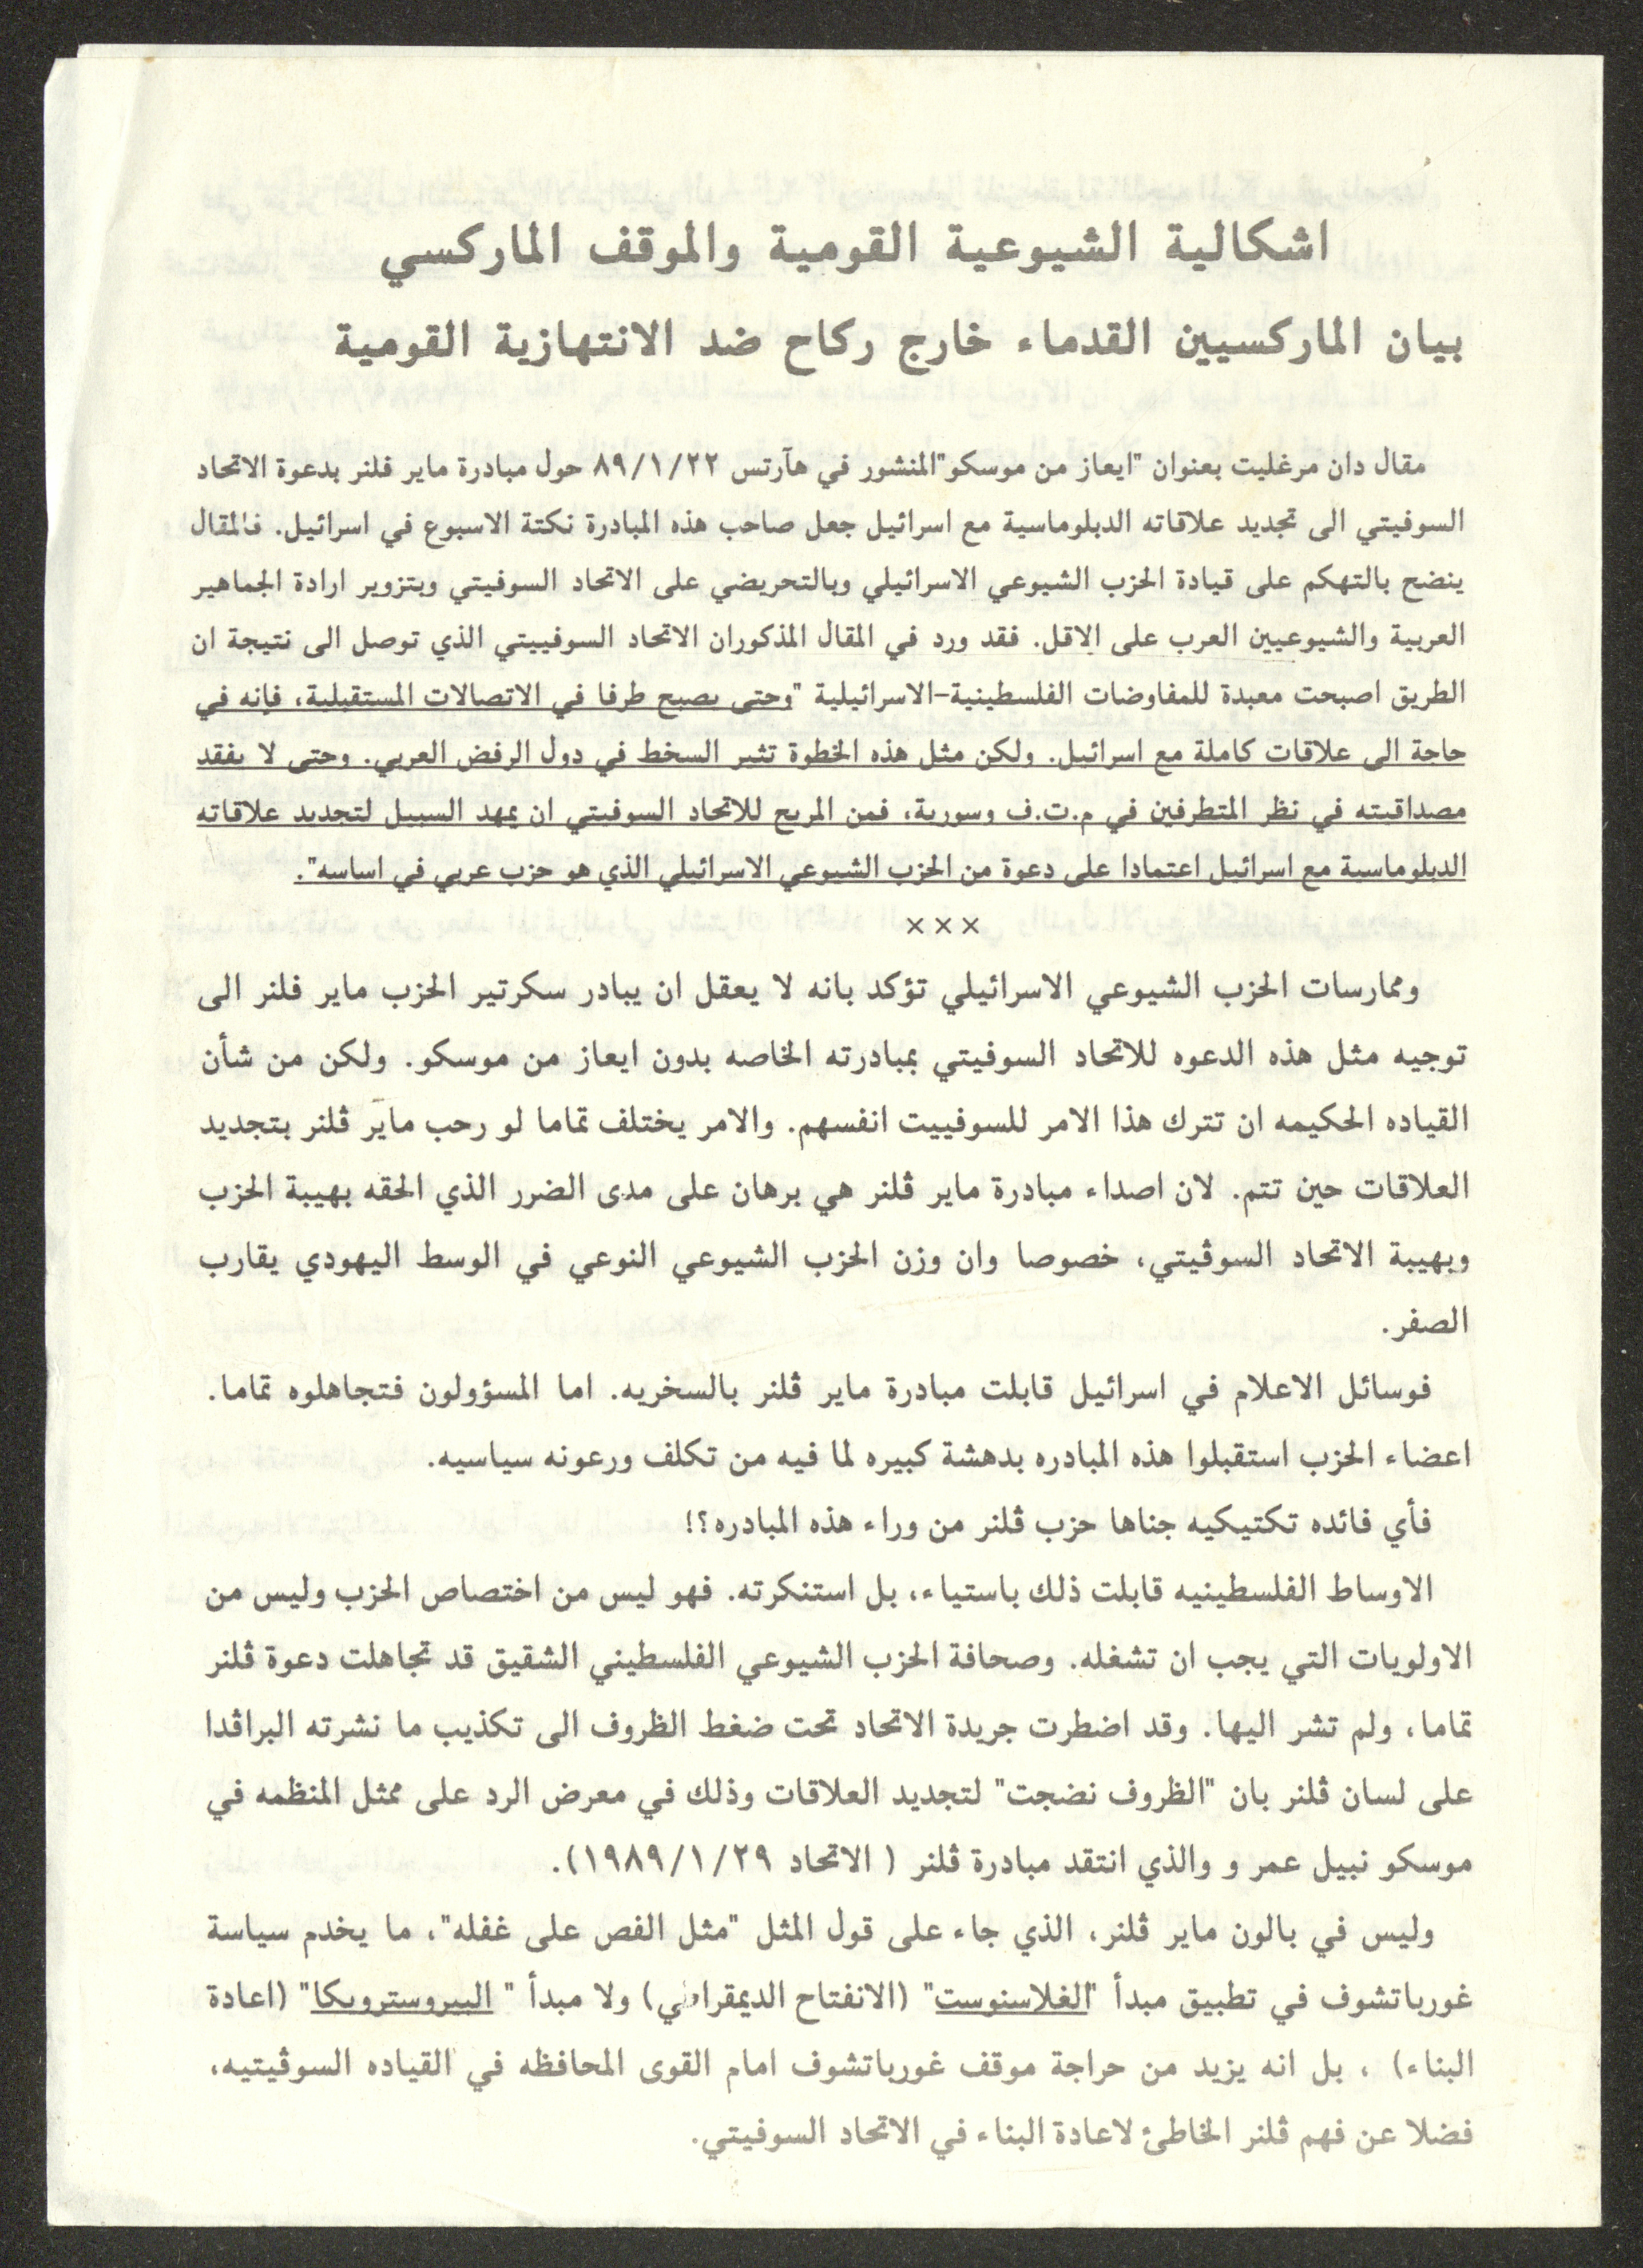 اشكالية الشيوعية القومية والموقف الماركسي
بيان الماركسيين القدماء خارج ركاح ضد الانتهازية القومية
مقال دان مرغليت بعنوان "ايعاز من موسكو"المنشور في هآرتس ٨٩/١/٢٢ حول مبادرة ماير فلنر بدعوة الاتحاد
السوفيتي الى تجديد علاقاته الدبلوماسية مع اسرائيل جعل صاحب هذه المبادرة نكتة الاسبوع في اسرائيل. فالمقال
ينضح بالتهكم على قيادة الحزب الشيوعي الاسرائيلي وبالتحريضي على الاتحاد السوفيتي وبتزوير ارادة الجماهير
العربية والشيوعيين العرب على الاقل. فقد ورد في المقال المذكوران الاتحاد السوفييتي الذي توصل الى نتيجة ان
الطريق اصبحت معبدة للمفاوضات الفلسطينية-الاسرائيلية "وحتى يصبح طرفا في الاتصالات المستقبلية، فإنه في
حاجة الى علاقات كاملة مع اسرائيل. ولكن مثل هذه الخطوة تثير السخط في دول الرفض العربي. وحتى لا يفقد
مصداقيته في نظر المتطرفين في م.ت.ف وسورية، فمن المريح للاتحاد السوفيتي ان يمهد السبيل لتجديد علاقاته
الدبلوماسية مع اسرائيل اعتمادا على دعوة من الحزب الشيوعي الاسرائيلي الذي هو حزب عربي في اساسه".
×××
وممارسات الحزب الشيوعي الاسرائيلي تؤكد بانه لا يعقل ان يبادر سكرتير الحزب ماير فلنر الى
توجيه مثل هذه الدعوه للاتحاد السوفيتي بمبادرته الخاصه بدون ايعاز من موسكو. ولكن من شأن
القياده الحكيمه ان تترك هذا الامر للسوفييت انفسهم. والامر يختلف تماما لو رحب ماير ڤلنر بتجديد
العلاقات حين تتم. لان اصداء مبادرة ماير ڤلنر هي برهان على مدى الضرر الذي الحقه بهيبة الحزب
وبهيبة الاتحاد السوڤيتي، خصوصا وان وزن الحزب الشيوعي النوعي في الوسط اليهودي يقارب
الصفر.
فوسائل الاعلام في اسرائيل قابلت مبادرة ماير ڤلنر بالسخريه. اما المسؤولون فتجاهلوه تماما.
اعضاء الحزب استقبلوا هذه المبادره بدهشة كبيره لما فيه من تكلف ورعونه سياسيه.
فأي فائده تكتيكيه جناها حزب ڤلنر من وراء هذه المبادره؟!
الاوساط الفلسطينيه قابلت ذلك باستياء، بل استنكرته. فهو ليس من اختصاص الحزب وليس من
الاولويات التي يجب ان تشغله. وصحافة الحزب الشيوعي الفلسطيني الشقيق قد تجاهلت دعوة ڤلنر
تماما، ولم تشر اليها. وقد اضطرت جريدة الاتحاد تحت ضغط الظروف الى تكذيب ما نشرته البراڤدا
على لسان ڤلنر بان "الظروف نضجت" لتجديد العلاقات وذلك في معرض الرد على ممثل المنظمه في
موسكو نبيل عمر و والذي انتقد مبادرة ڤلنر ( الاتحاد ١٩٨٩/١/٢٩).
وليس في بالون ماير ڤلنر، الذي جاء على قول المثل "مثل الفص على غفله"، ما يخدم سياسة
غورباتشوف في تطبيق مبدأ "الغلاسنوست" (الانفتاح الديمقراطي) ولا مبدأ " البيروسترويكا" (اعادة
البناء) ، بل انه يزيد من حراجة موقف غورباتشوف امام القوى المحافظه في القياده السوڤيتيه،
فضلا عن فهم ڤلنر الخاطئ لاعادة البناء في الاتحاد السوفيتي.